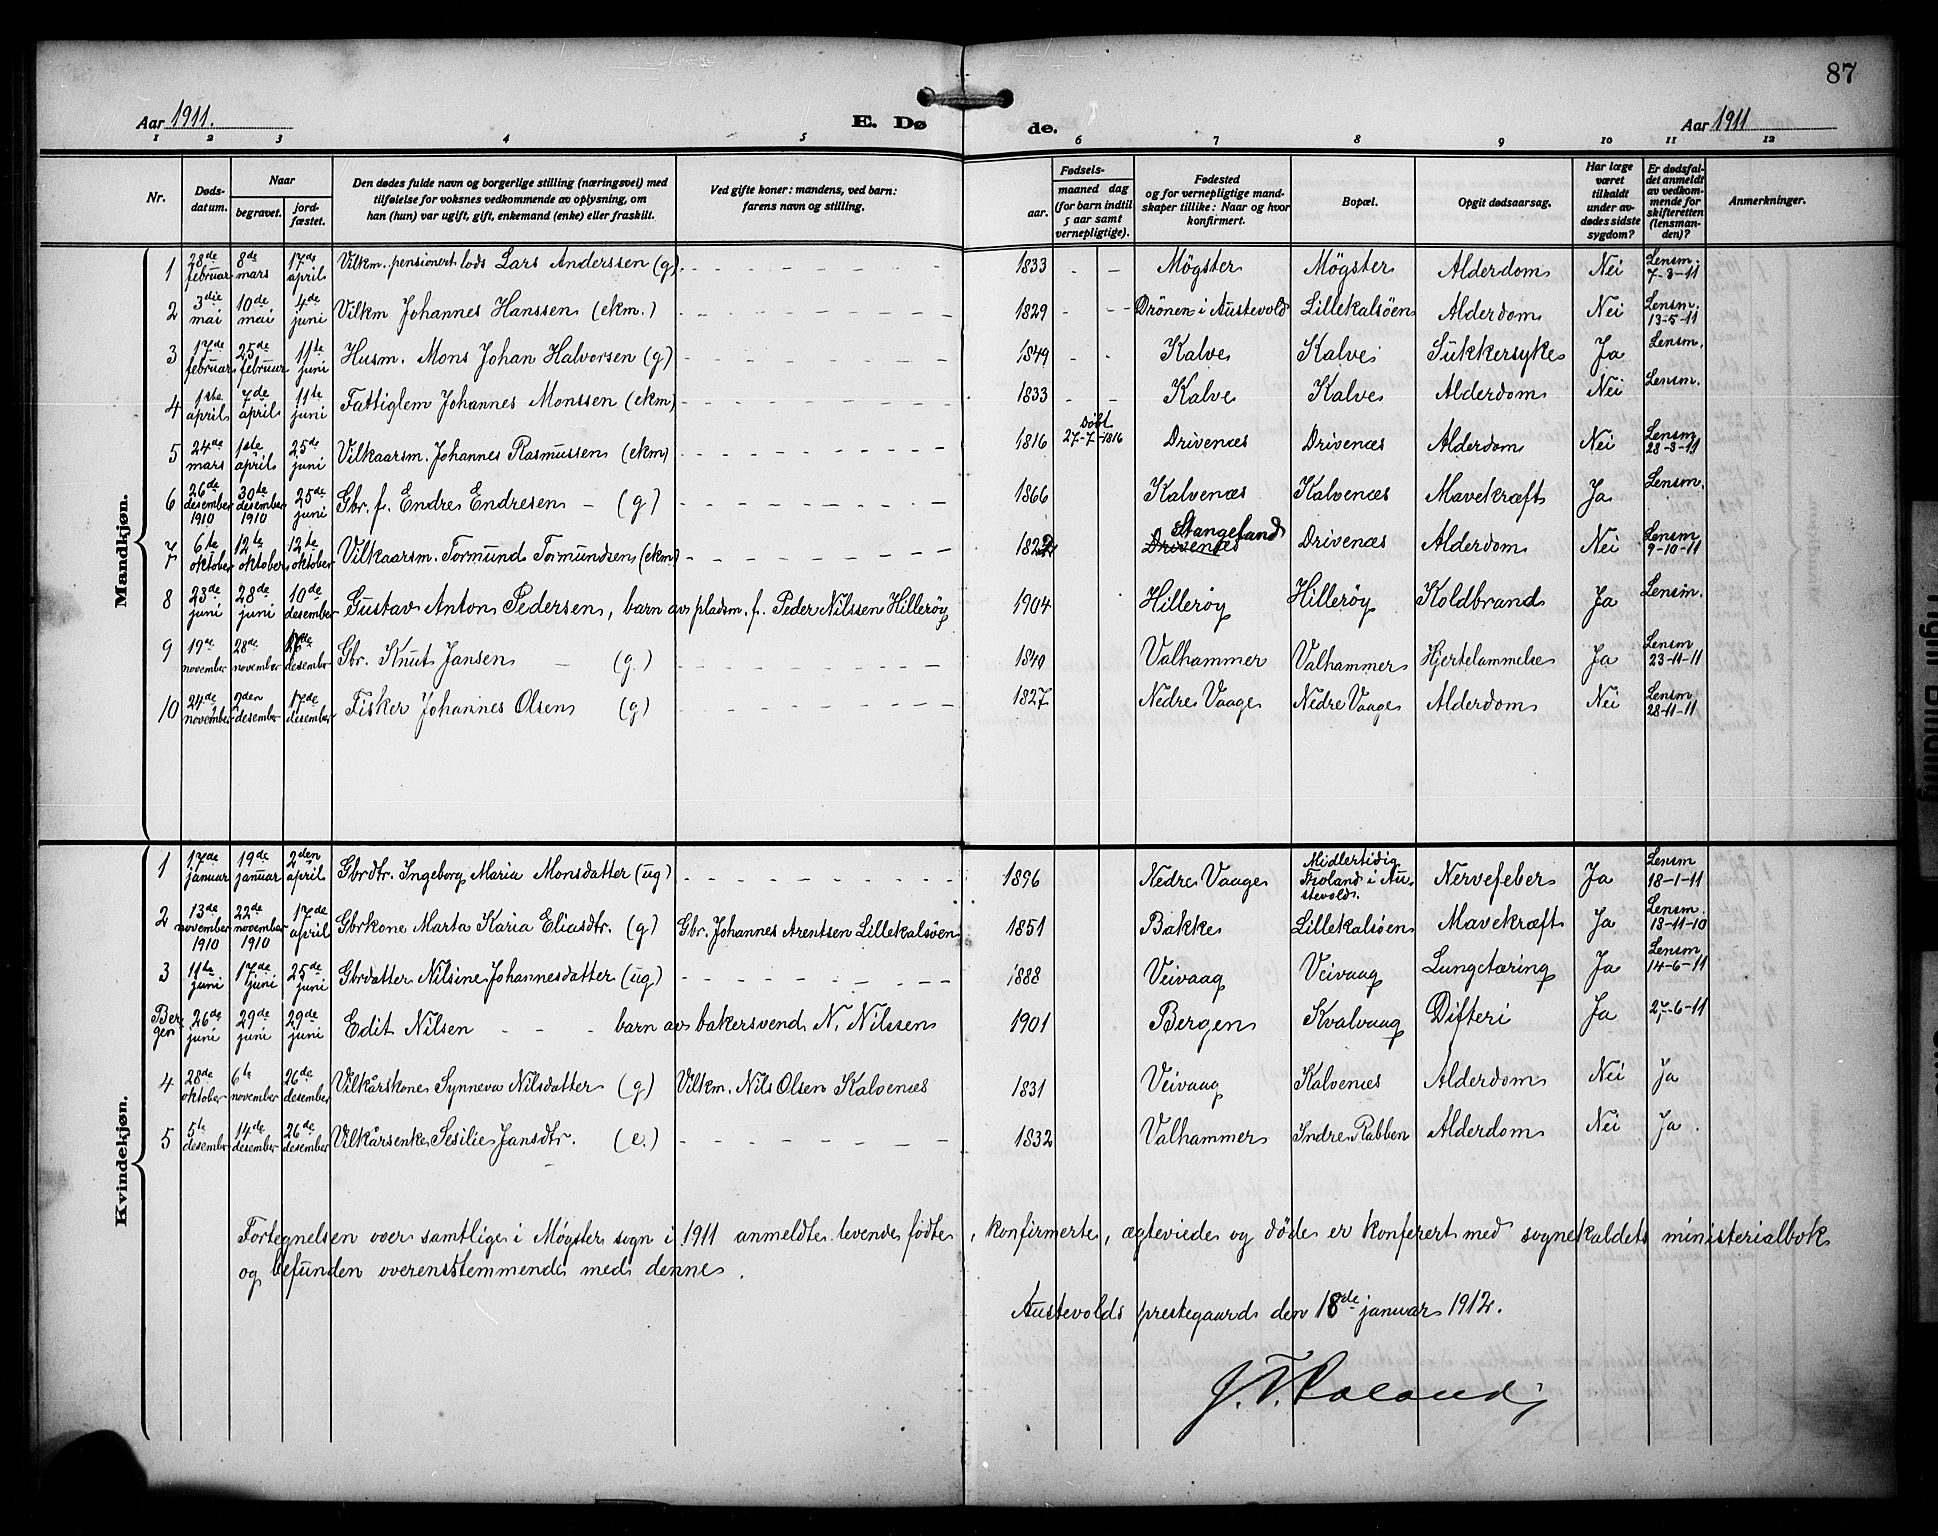 87
Aar 1911. E. Dø de. Aar 1911
1 2 3 4 5 6 7 8 9 10 11 12
Nr. | Døds-datum. | Naar begravet. | jord-fæstet. | Den dødes fulde navn og borgerlige stilling (næringsvei) med tilføielse for voksnes vedkommende av oplysning, om han (hun) var ugift, gift, enkemand (enke) eller fraskilt. | Ved gifte koner: mandens, ved barn: farens navn og stilling. | Fødsels- aar. | maaned dag (for barn indtil 5 aar samt vernepligtige). | Fødested og for vernepligtige mand-skaper tillike: Naar og hvor konfirmert. | Bopæl. | Opgit dødsaarsag. | Har læge været tilkaldt under av-dødes sidste sygdom? | Er dødsfal-det anmeldt av vedkom-mende for skifteretten (lensman-den)? | Anmerkninger.
Mandkjøn.
1 | 28de februar | 8de mars | 17de april | Vilkm. pensionert lods Lars Anderssen (g) | - - - | 1833 | - - | Møgster | Møgster | Alderdom | Nei | Lensm. 7-3-11
2 | 3die mai | 10de mai | 4de juni | Vilkm Johannes Hanssen (ekm.) | - - - | 1829 | - - - | Drönen i Austevold | Lillekalsöen | Alderdom | Nei | Lensm. 13-5-11
3 | 17de februar | 25de februar | 11te juni | Husm. Mons Johan Halvorsen (g) | - - - | 1849 | - - | Kalve | Kalve | Sukkersyke | Ja | Lensm.
4 | 1ste april | 7de april | 11te juni | Fattiglem Johannes Monssen (ekm) | - - - | 1833 | - - | Kalve | Kalve | Alderdom | Nei | Lensm.
5 | 24de mars | 1ste april | 25de juni | Vilkaarsm. Johannes Rasmussen (ekm) | - - - | 1816 | Döbt 27-7-1816 | Drivenæs | Drivenæs | Alderdom | Nei | Lensm 28-3-11
6 | 26de desember 1910 | 30te desember 1910 | 25de juni | Gbr. f. Endre Endresen - (g) | - - - | 1866 | Kalvenæs | Kalvenæs | Mavekræft | Ja | Lensm.
7 | 6te oktober | 12te oktober | 12te oktober | Vilkaarsm. Tormund Tormundsen (ekm) | - - - | 1822 | Stangeland Drivenes | Drivenæs | Alderdom | Nei | Lensm 9-10-11
8 | 23de juni | 28de juni | 10de desember | Gustav Anton Pedersen, barn av pladsm. f. Peder Nilssen Hilleröy | 1904 | Hilleröy | Hilleröy | Koldbrand | Ja | Lensm.
9 | 19de november | 28de november | 17de desember | Gbr. Knut Jansen - (g.) | - - - | 1840 | Valhammer | Valhammer | Hjertelammelse | Ja | Lensm 23-11-11
10 | 24de november | 2den desember | 17de desember | Fisker Johannes Olsen (g) | - - - | 1827 | Nedre Vaage | Nedre Vaage | Alderdom | Nei | Lensm 28-11-11
Kvindekjøn.
1 | 17de januar | 19de januar | 2den april | Gbrdtr. Ingeborg Maria Monsdatter (ug) | - - - | 1896 | Nedre Vaage | Midlertidig Troland i Au-stevold. | Nervefeber | Ja | Lensm 18-1-11
2 | 13de november 1910 | 22de november 1910 | 17de april | Gbrkone Marta Karia Eliasdtr. (g) | Gbr. Johannes Arentsen Lillekalsöen | 1851 | Bakke | Lillekalsöen | Mavekræft | Ja | Lensm. 18-11-10
3 | 11te juni | 17de juni | 25de juni | Gbrdatter Nilsine Johannesdatter (ug) | - - - | 1888 | Veivaag | Veivaag | Lungetæring | Ja | Lensm 14-6-11
Ber-gen | 26de juni | 29de juni | 29de juni | Edit Nilsen - - - barn av bakersvend N. Nilssen | 1901 | Bergen | Kvalvaag | Difteri | Ja | 27-6-11
4 | 28de oktober | 6te november | 26de desember | Vilkårskone Synneva Nilsdatter (g) | Vilkm. Nils Olsen Kalvenæs | 1831 | Veivaag | Kalvenæs | Alderdom | Nei | Ja
5 | 5te desember | 14de desember | 26de desember | Vilkårsenke Sesilie Jansdtr. (e.) | - - - | 1832 | Valhammer | Indre Rabben | Alderdom | Nei | Ja.
Fortegnelsen over samtlige i Møgster sogn i 1911 anmeldte levende fødte, konfirmerte, ægteviede og döde er konferert med sognekaldets ministerialbok
og befunden overensstemmende med denne.
Austevolds prestegaard den 18de januar 1912.